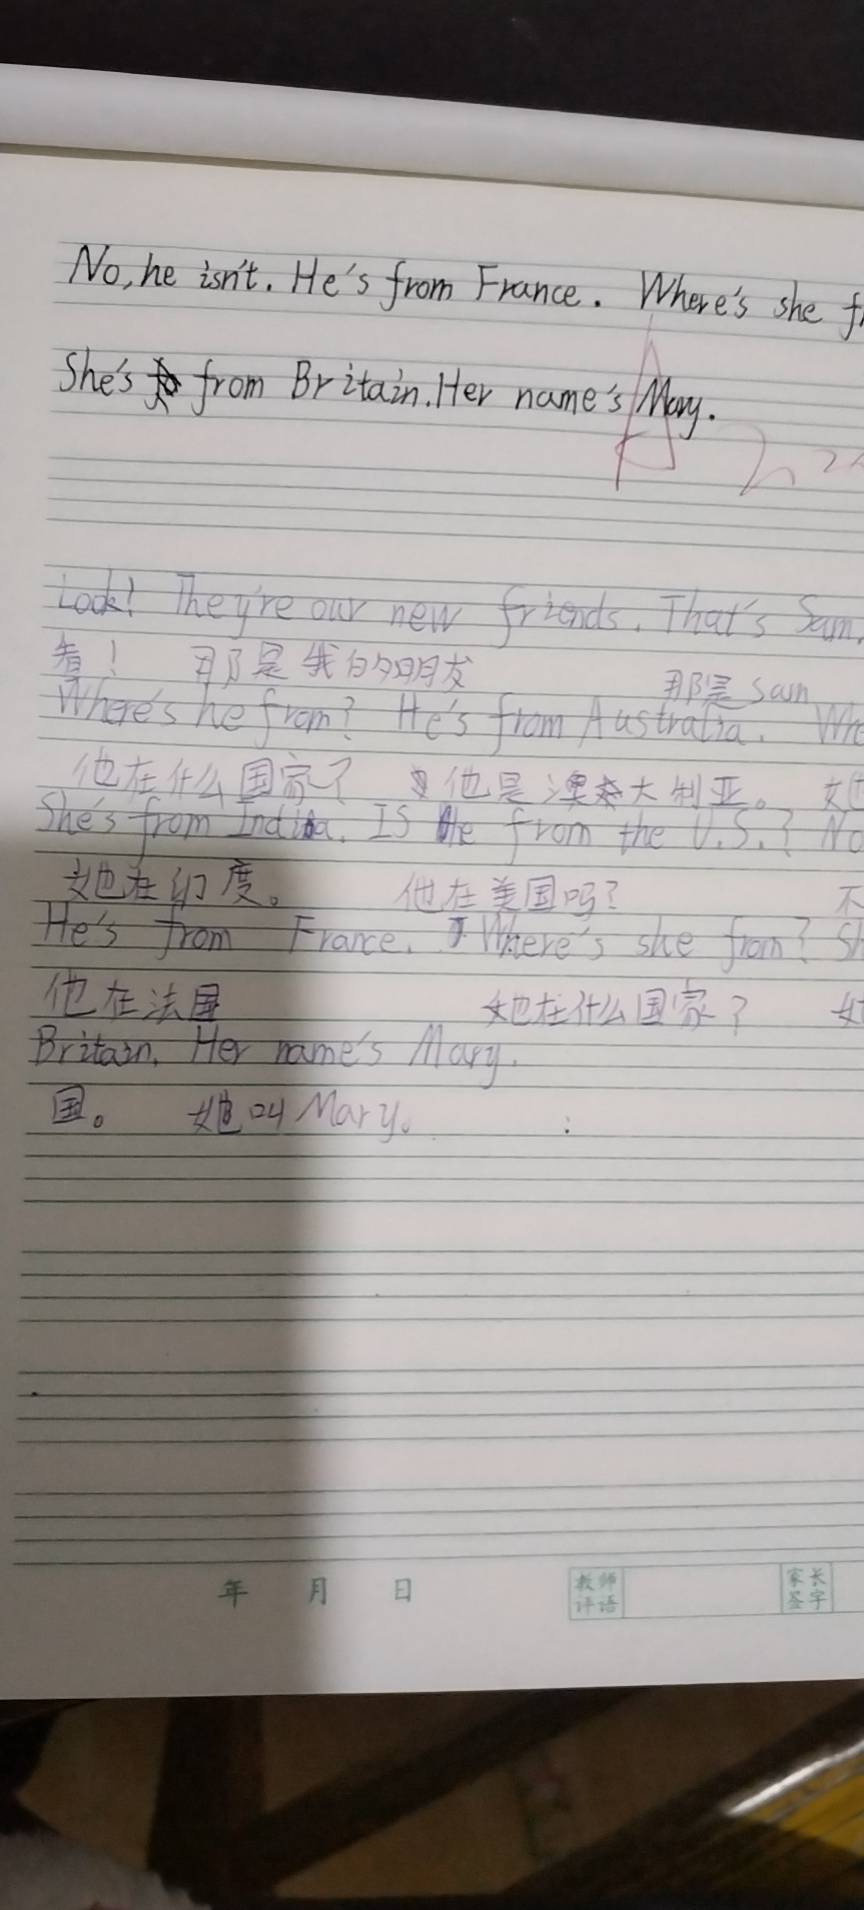 No, he isn't. He's from France. Where's she
She's from Britain. Her name's Mary.
A
Look! They're our new friends. That's Sam.
看！ 那是我的朋友 那是 Sam
Where's he from? He's from Australia.
他在什么国家？ 他是澳大利亚。
She's from India. IS he from the U.S.? No
她在印度。 他在美国吗？ 不
He's from France. Where's she from?
他在法国 她在什么国家？
Britain. Her name's Mary.
国。 她叫 Mary。
年 月 日
教师评语
家长签字